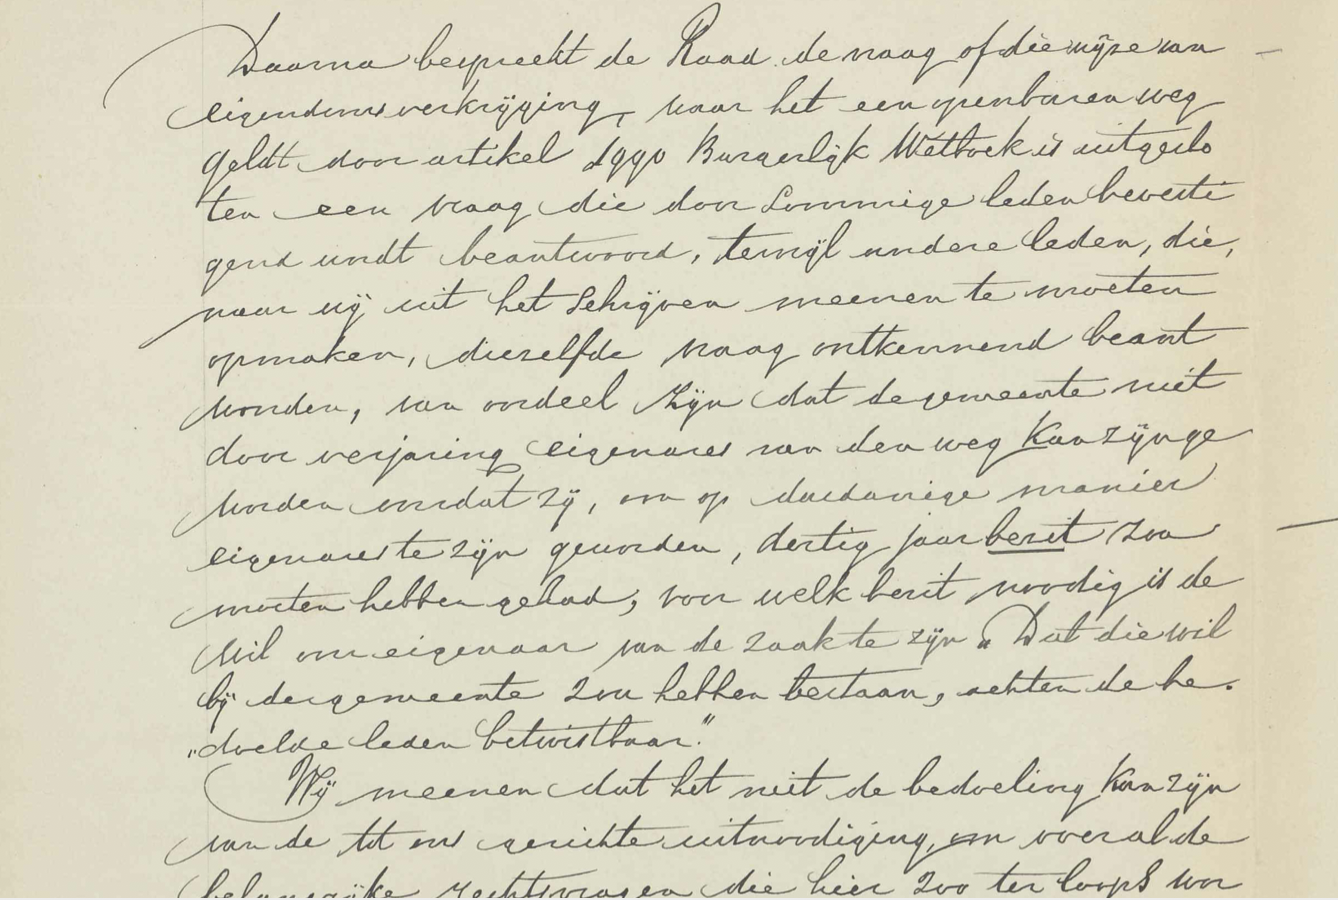 Daarna bespreekt de Raad de vraag of die wijze van
eigendomsverkrijging, waar het een openbaren weg
geldt door artikel 1990 Burgerlijk Wetboek is uitgeslo
ten een vraag die door sommige leden bevesti
gend wordt beantwoord, terwijl andere leden, die,
naar wij uit het schrijven meenen te moeten
opmaken, diezelfde vraag ontkennend beant
woorden, van oordeel zijn dat de gemeente niet
door verjaring eigenares van den weg kan zijn ge
worden omdat zij, om op dusdanige manier
eigenares te zijn geworden, dertig jaar bezit zou
moeten hebben gehad, voor welk bezit noodig is de
wil om eigenaar van de zaak te zijn „Dat die wil
bij de gemeente zou hebben bestaan, achten de be.
„doelde leden betwistbaar."
Wij meenen dat het niet de bedoeling kan zijn
van de tot ons gerichte uitnoodiging, om over al de
belangrijke rechtsvragen die hier zoo ter loops wor